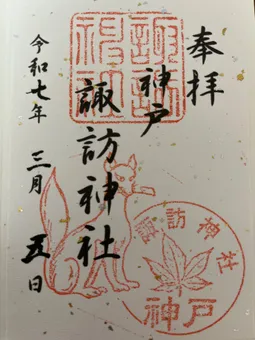 奉拝
神戸
諏訪神社
令和七年 三月 五日
諏訪神社
神戸